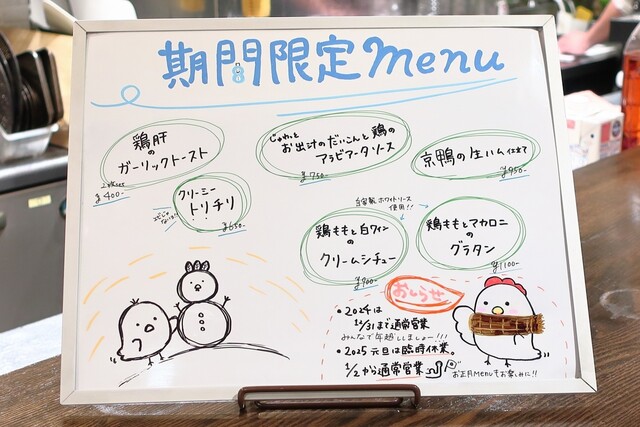 期間限定menu
鶏肝
の
ガーリックトースト
¥400-
じゅわっと
お出汁のだいこんと鶏の
アラビアータソース
¥750-
京鴨の生ハム仕立て
¥950-
クリーミー
トリチリ
エビじゃ
ない!!
¥650-
自家製ホワイトソース
使用!!
鶏ももと白ワイン
の
クリームシチュー
¥900-
鶏ももとマカロニ
の
グラタン
¥1100-
おしらせ
・2024は
12/31まで通常営業
みんなで年越ししましょー!!!
・2025元旦は臨時休業。
1/2から通常営業
お正月menuもお楽しみに!!